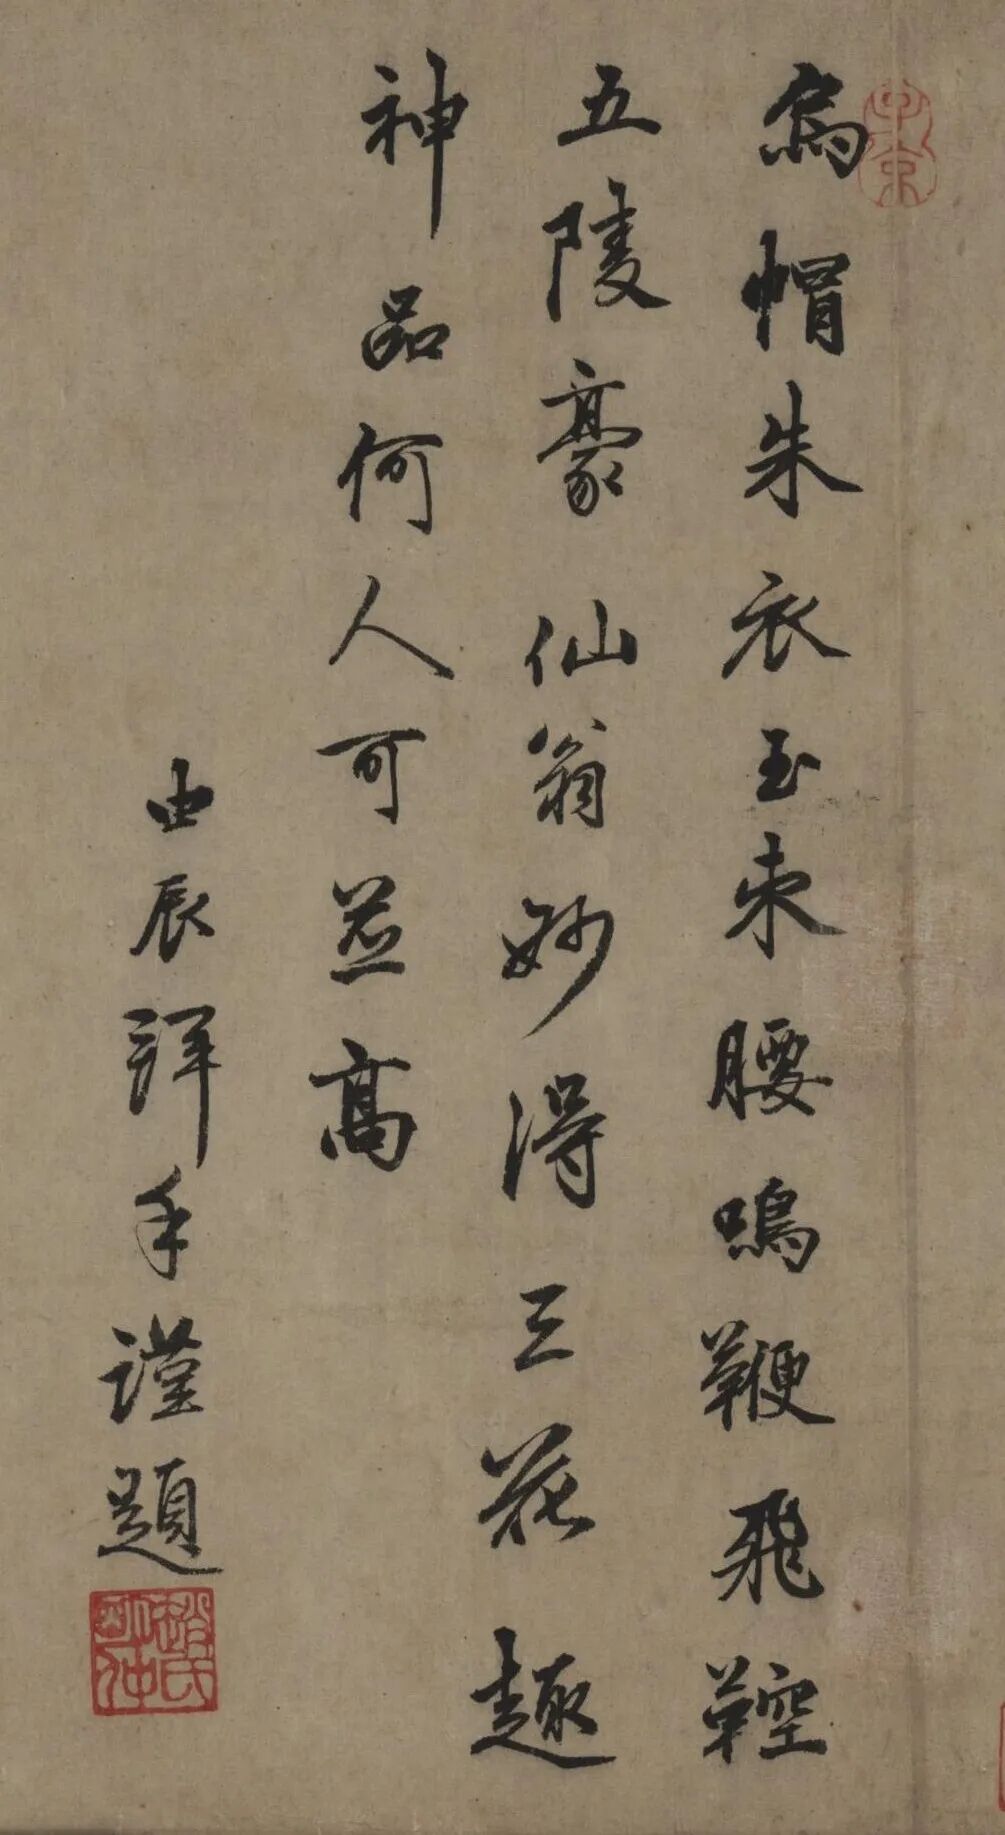 烏帽朱衣玉束腰鳴鞭飛鞚
五陵豪仙翁妙得三花趣
神品何人可並高
由辰拜手謹題
趙氏由仲